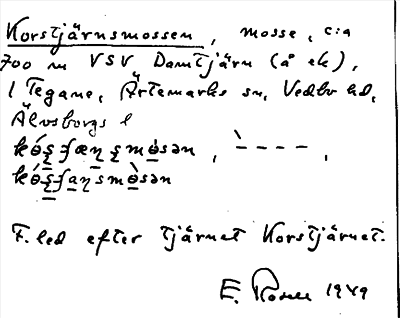 Korstjärnsmossen, mosse, c:a
700 m VSV Damtjärn (å ek),
l Tegane, Ärtemarks sn, Vedbo hd,
Älvsborgs l
kɵ́ʂʃæɳʂmɵ̀sən, `- - - -,
kɵ́ʂʃaɳsmɵ̀sən
F. led efter tjärnet Korstjärnet.
E. 1949